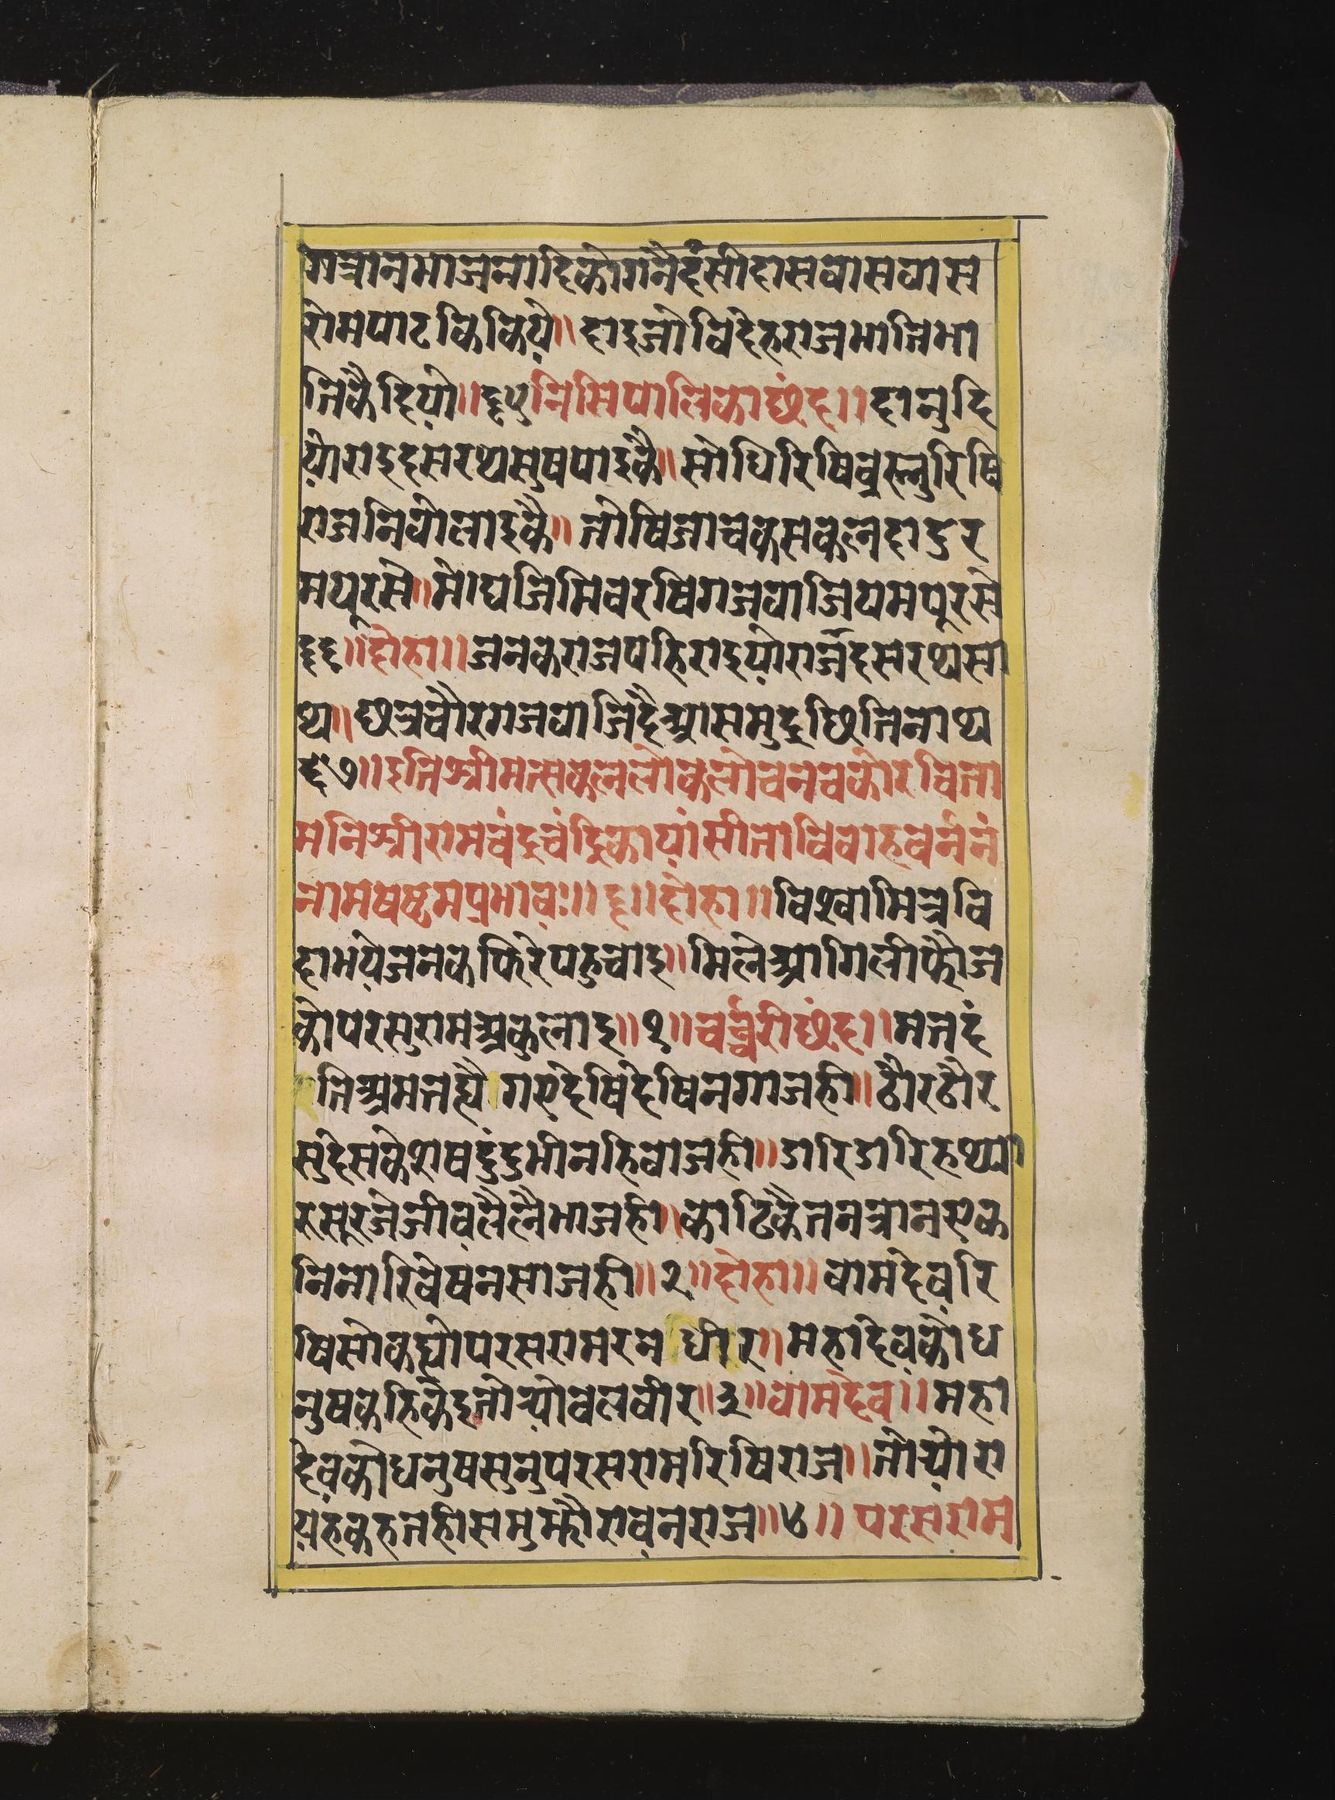 गत्रानभाजनादिकोगनैहंसीदासवासवास
रोमपाटकिकिये॥दाइजोविदेहराजभातिभा
तिकैदियो॥६५निसिपालिकाछंद॥दानुदि
योराइदसरथसुषपाइकै॥सोधिरिषिव्रस्तुरिषि
राजनिवोलाइकै॥तोषिजाचकसकलदादुर
मयूरसे॥मेाघजिमिवरषिगजवाजियमपूरसे
६६॥दोहा॥जनकराजपहिराइयोराजेदसरथसा
थ॥छत्रचौरगजवाजिदैआसमुद्रछितिनाथ
६७॥इतिश्रीमत्सकललोकलोचनचकोरचिंता
मनिश्रीरामचंद्रचंद्रिकायांसीताविवाहवर्ननं
नामषष्टमप्रभावः॥६॥दोहा॥विश्वामित्रवि
दाभयेजनकफिरेपहुचाइ॥मिलेआगिलीफौज
कोपरसुरामअकुलाइ॥१॥चर्च्चरीछंद॥मत्तदं
तिअमत्तह्वै गएदेषिदेषिनगाजही॥ठौरठौर
सुदेसकेशषदुंदुभीनहिवाजही॥डारिडारिहथ्या
रसूरजेजीवलैलैभाजही॥काटिकैतनत्रानएक
निनारिवेषनसाजही॥२॥दोहा॥वामदेवरि
षिसोकह्योपरसरामरनधीर॥महादेवकोध
नुषकहिकैइतोर्योवलवीर॥३॥वामदेव॥महा
देवकोधनुषसुनुपरसरामरिषिराज॥तोर्योरा
यहकहतहीसमुझौरावनराज॥४॥परसराम